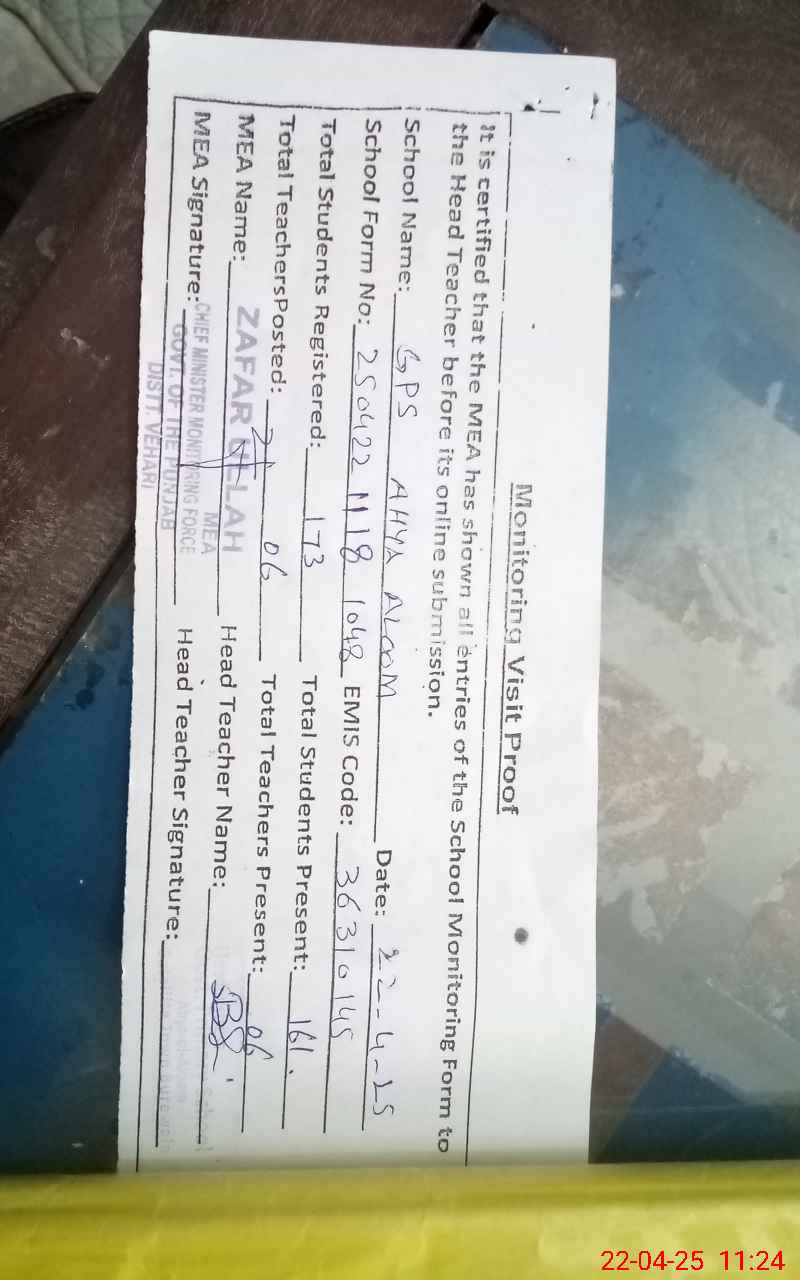 Monitoring Visit Proof
It is certified that the MEA has shown all entries of the School Monitoring Form to
the Head Teacher before its online submission.
School Name: GPS AHYA ALOOM Date: 22-4-25
School Form No: 250422 1118 1048 EMIS Code: 36310145
Total Students Registered: 173 Total Students Present: 161.
Total TeachersPosted: 06 Total Teachers Present: 06
MEA Name: ZAFAR ULLAH Head Teacher Name:
MEA Signature: Head Teacher Signature:
MEA
CHIEF MINISTER MONITORING FORCE
GOVT. OF THE PUNJAB
DISTT. VEHARI
22-04-25 11:24